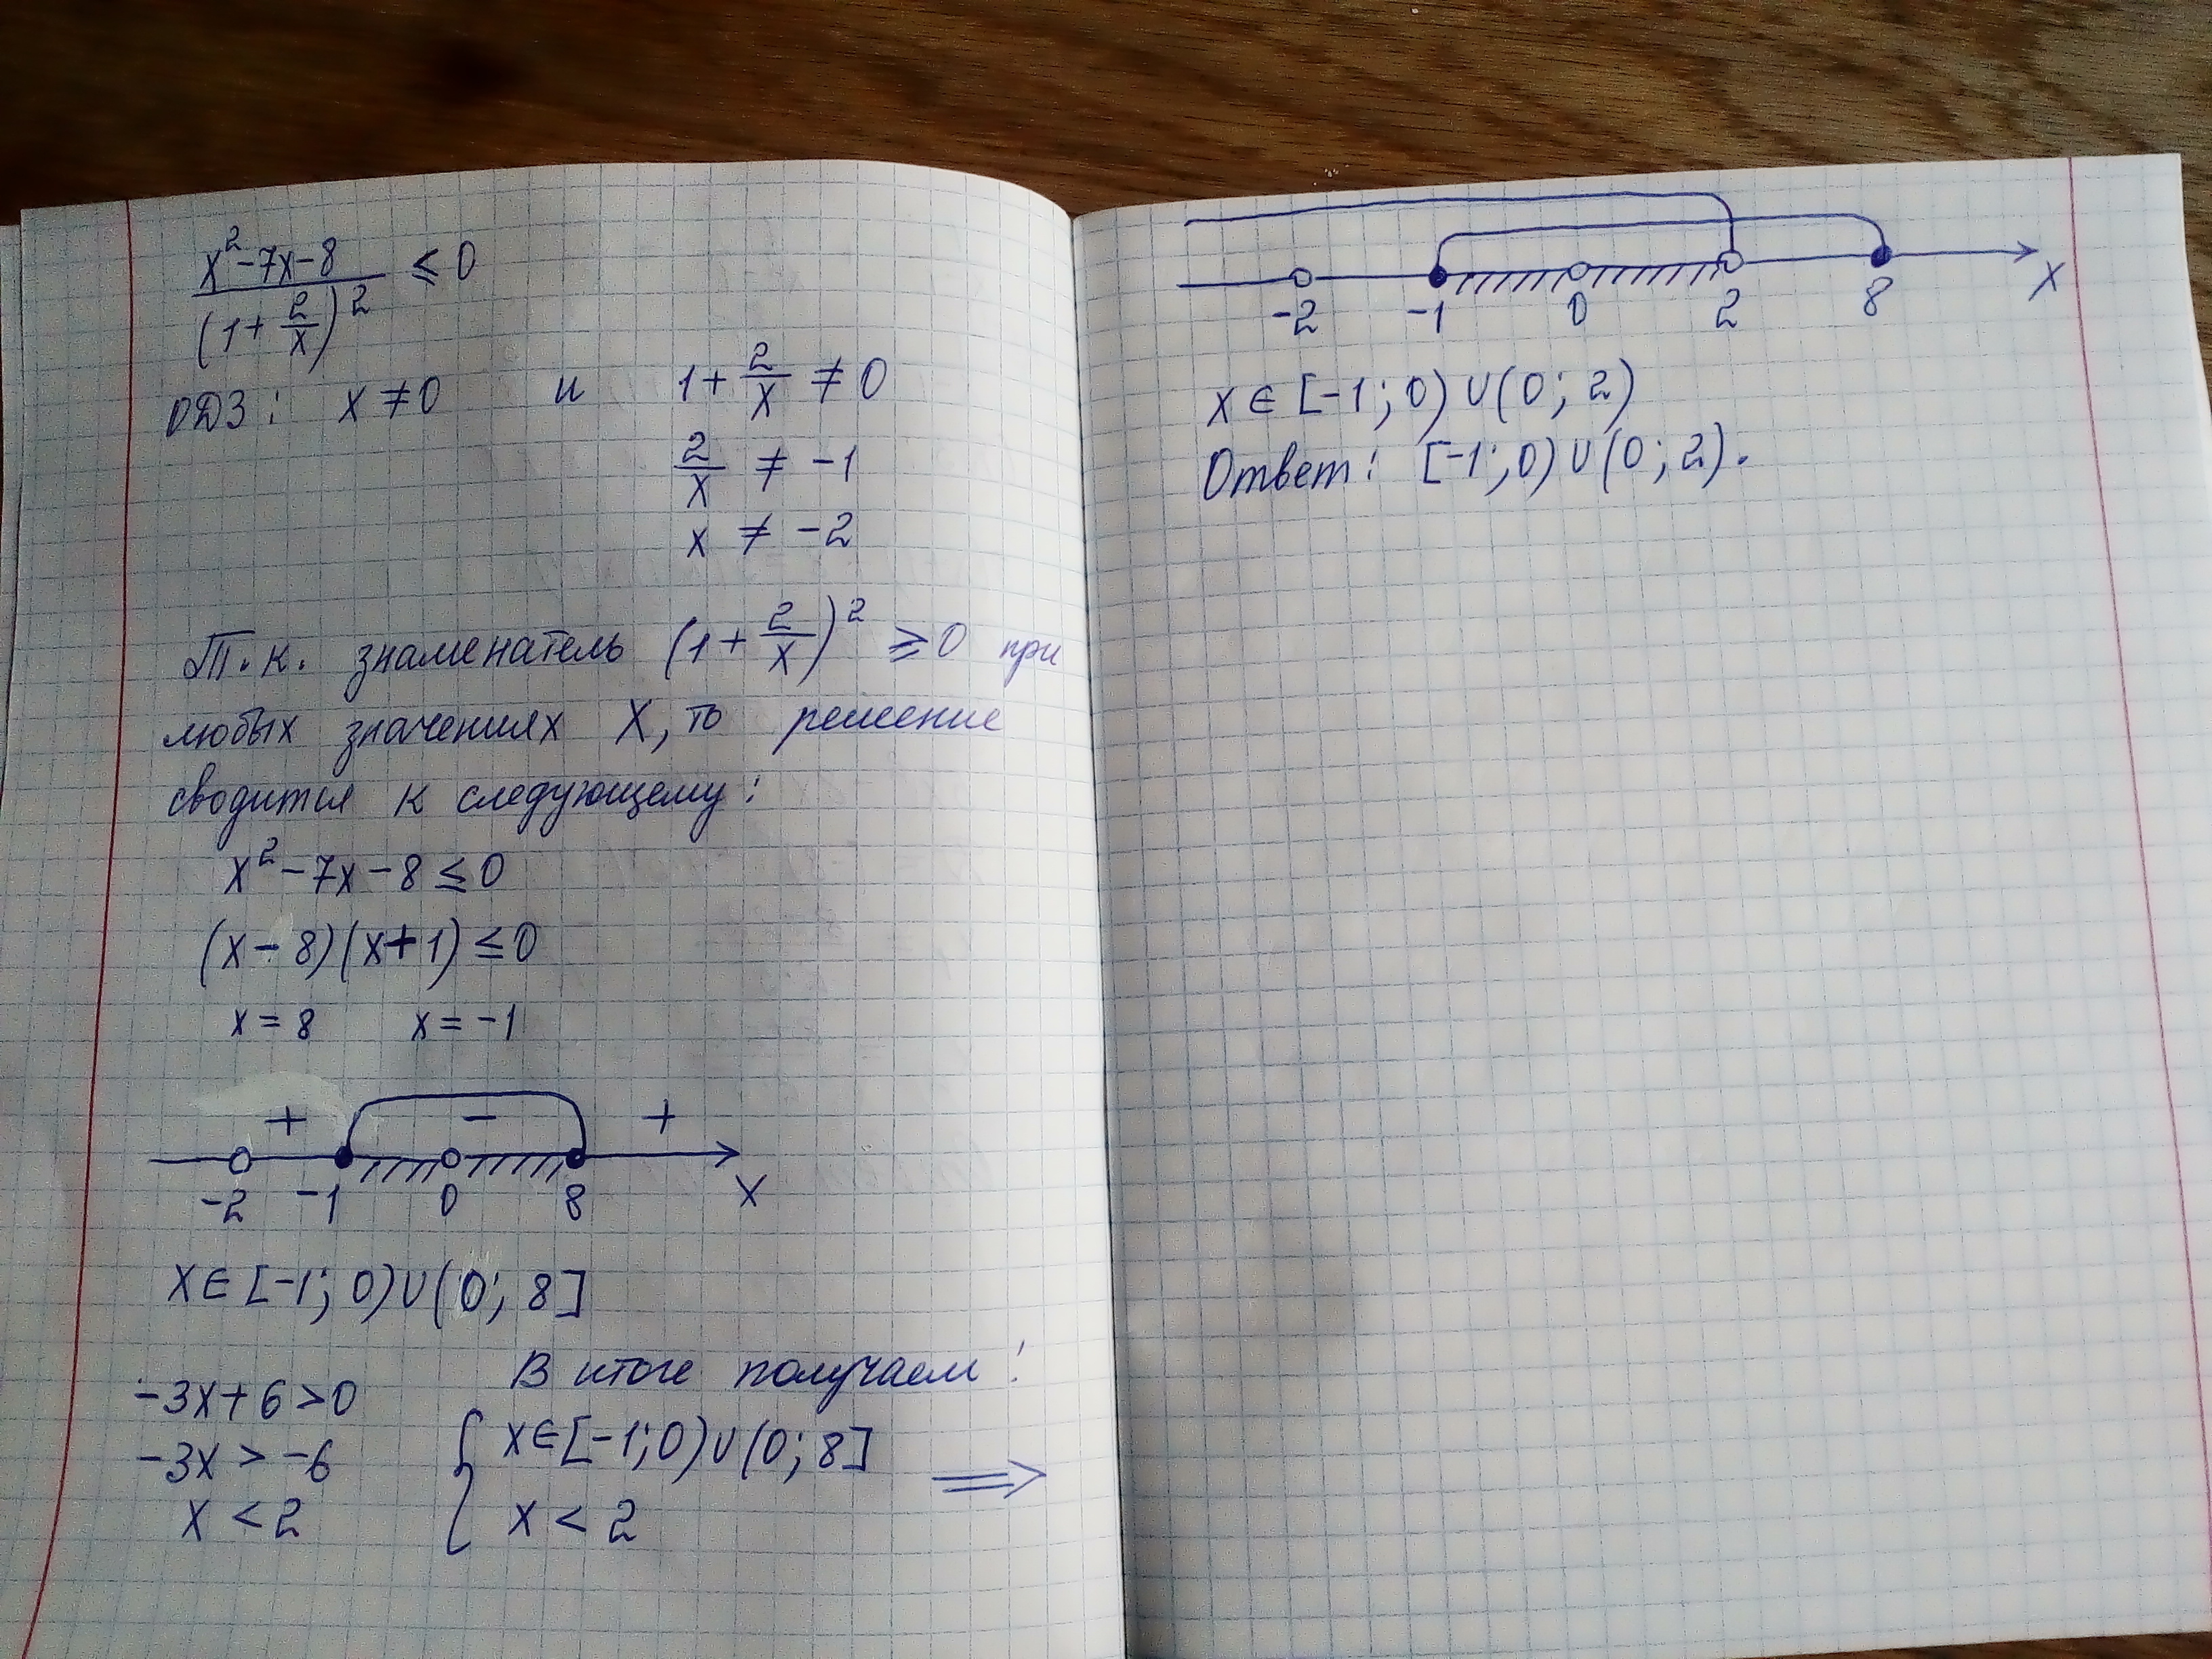 x²-7x-8 / (1+2/x)² ≤ 0
ОДЗ: x ≠ 0 и 1+2/x ≠ 0
2/x ≠ -1
x ≠ -2
Т.к. знаменатель (1+2/x)² ≥ 0 при
любых значениях X, то решение
сводится к следующему:
x²-7x-8 ≤ 0
(x-8)(x+1) ≤ 0
x = 8 x = -1
+ - +
-2 -1 0 8 X
X ∈ [-1; 0) ∪ (0; 8]
-3x+6 > 0
-3x > -6
x < 2
В итоге получаем:
{ x ∈ [-1; 0) ∪ (0; 8]
x < 2 ⟹
-2 -1 0 2 8 X
x ∈ [-1; 0) ∪ (0; 2)
Ответ: [-1; 0) ∪ (0; 2).